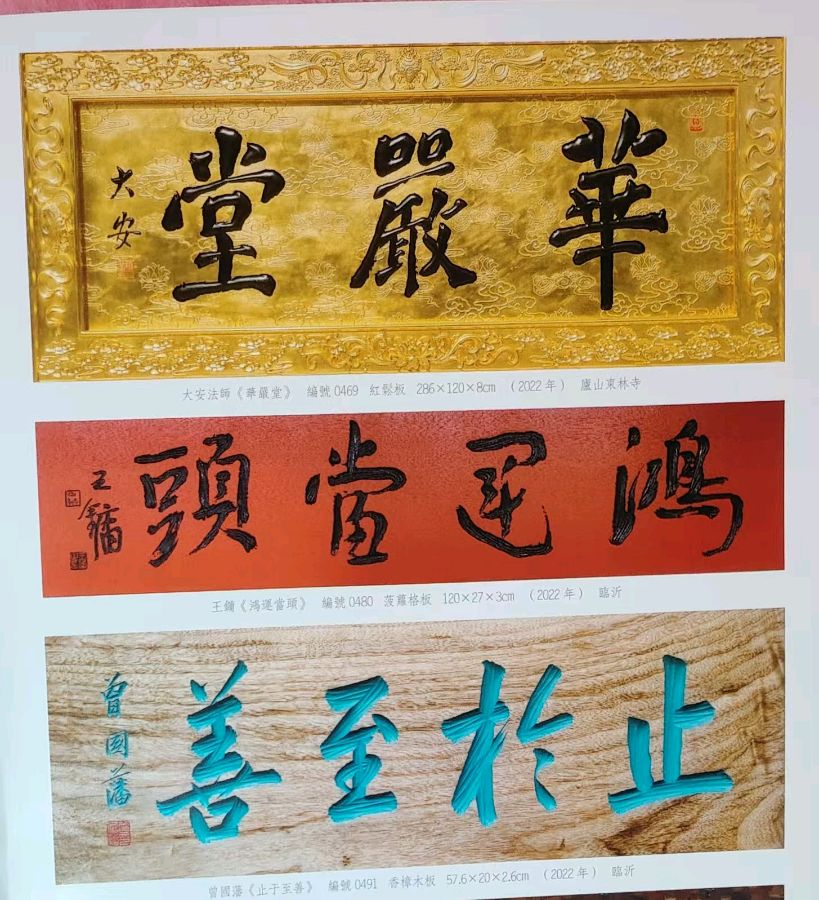 華嚴堂
大安
大安法師《華嚴堂》 編號0469 紅鬆板 286×120×8cm （2022年） 廬山東林寺
鴻運當頭
王鏞
王鏞《鴻運當頭》 編號0480 菠蘿格板 120×27×3cm （2022年） 臨沂
止於至善
曾國藩
曾國藩《止于至善》 編號0491 香樟木板 57.6×20×2.6cm （2022年） 臨沂